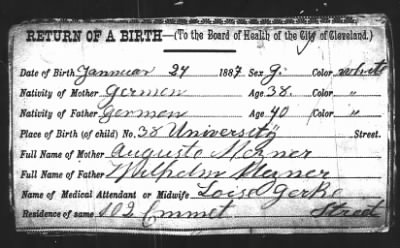 RETURN OF A BIRTH—(To the Board of Health of the City of Cleveland.)
Date of Birth Januar 27 1887. Sex g. Color white
Nativity of Mother german Age 38. Color "
Nativity of Father german Age 40 Color "
Place of Birth (of child) No. 38 University Street.
Full Name of Mother Auguste Meiner
Full Name of Father Wilhelm Meiner
Name of Medical Attendant or Midwife Loise Gerke
Residence of same 102 Emmet Street